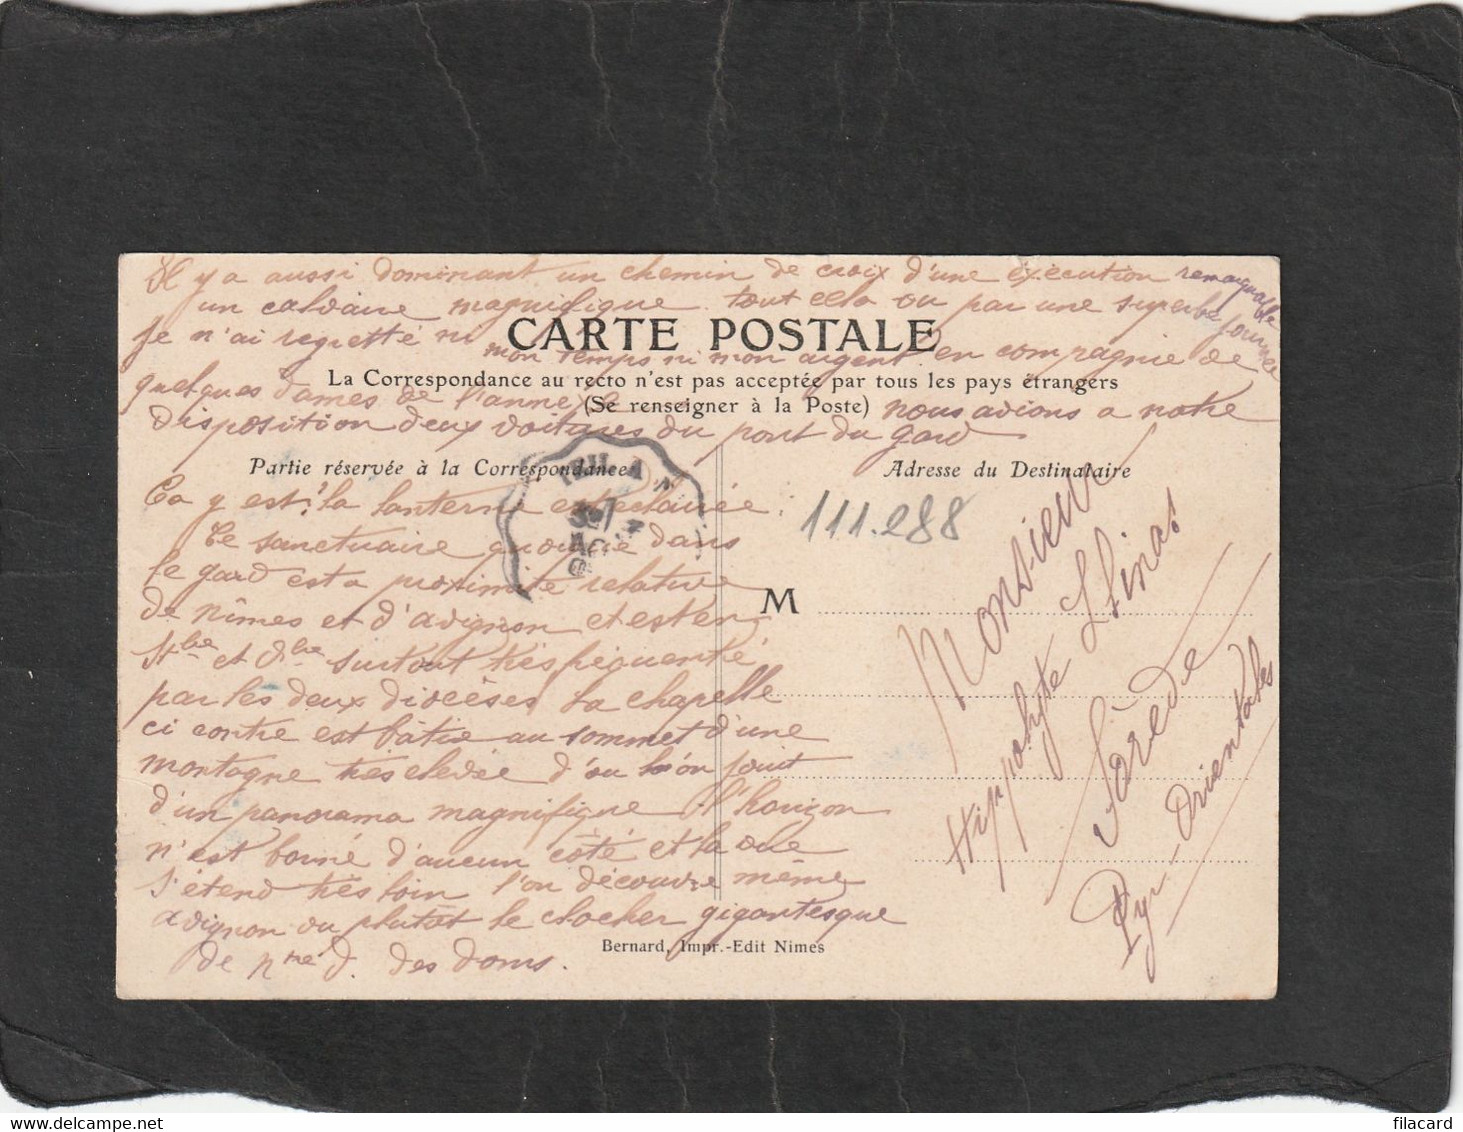 Il y a aussi dominant un chemin de croix d'une exécution remarquable
un calvaire magnifique. tout cela ou par une superbe journée
je n'ai regretté ni mon temps ni mon argent en compagnie de
quelques dames de l'annexe nous avions a notre
disposition deux voitures du pont du gard
CARTE POSTALE
La Correspondance au recto n'est pas acceptée par tous les pays étrangers
(Se renseigner à la Poste)
Partie réservée à la Correspondance
Adresse du Destinataire
Ca y est! la lanterne est éclairée.
Ce sanctuaire quoique dans
le gard est a proximité relative
de nîmes et d'avignon et est en
surtout très fréquenté
par les deux diocèses La chapelle
ci contre est bâtie au sommet d'une
montagne très elevée d'ou l'on jouit
d'un panorama magnifique l'horizon
n'est borné d'aucun côté et la vue
s'étend très loin l'on découvre même
avignon ou plutôt le clocher gigantesque
de nme d. des doms.
111.288
M
Monsieur
Hippolyte Llinas
Sorède
Pyr-Orientales
Bernard, Impr.-Edit Nimes
filacard